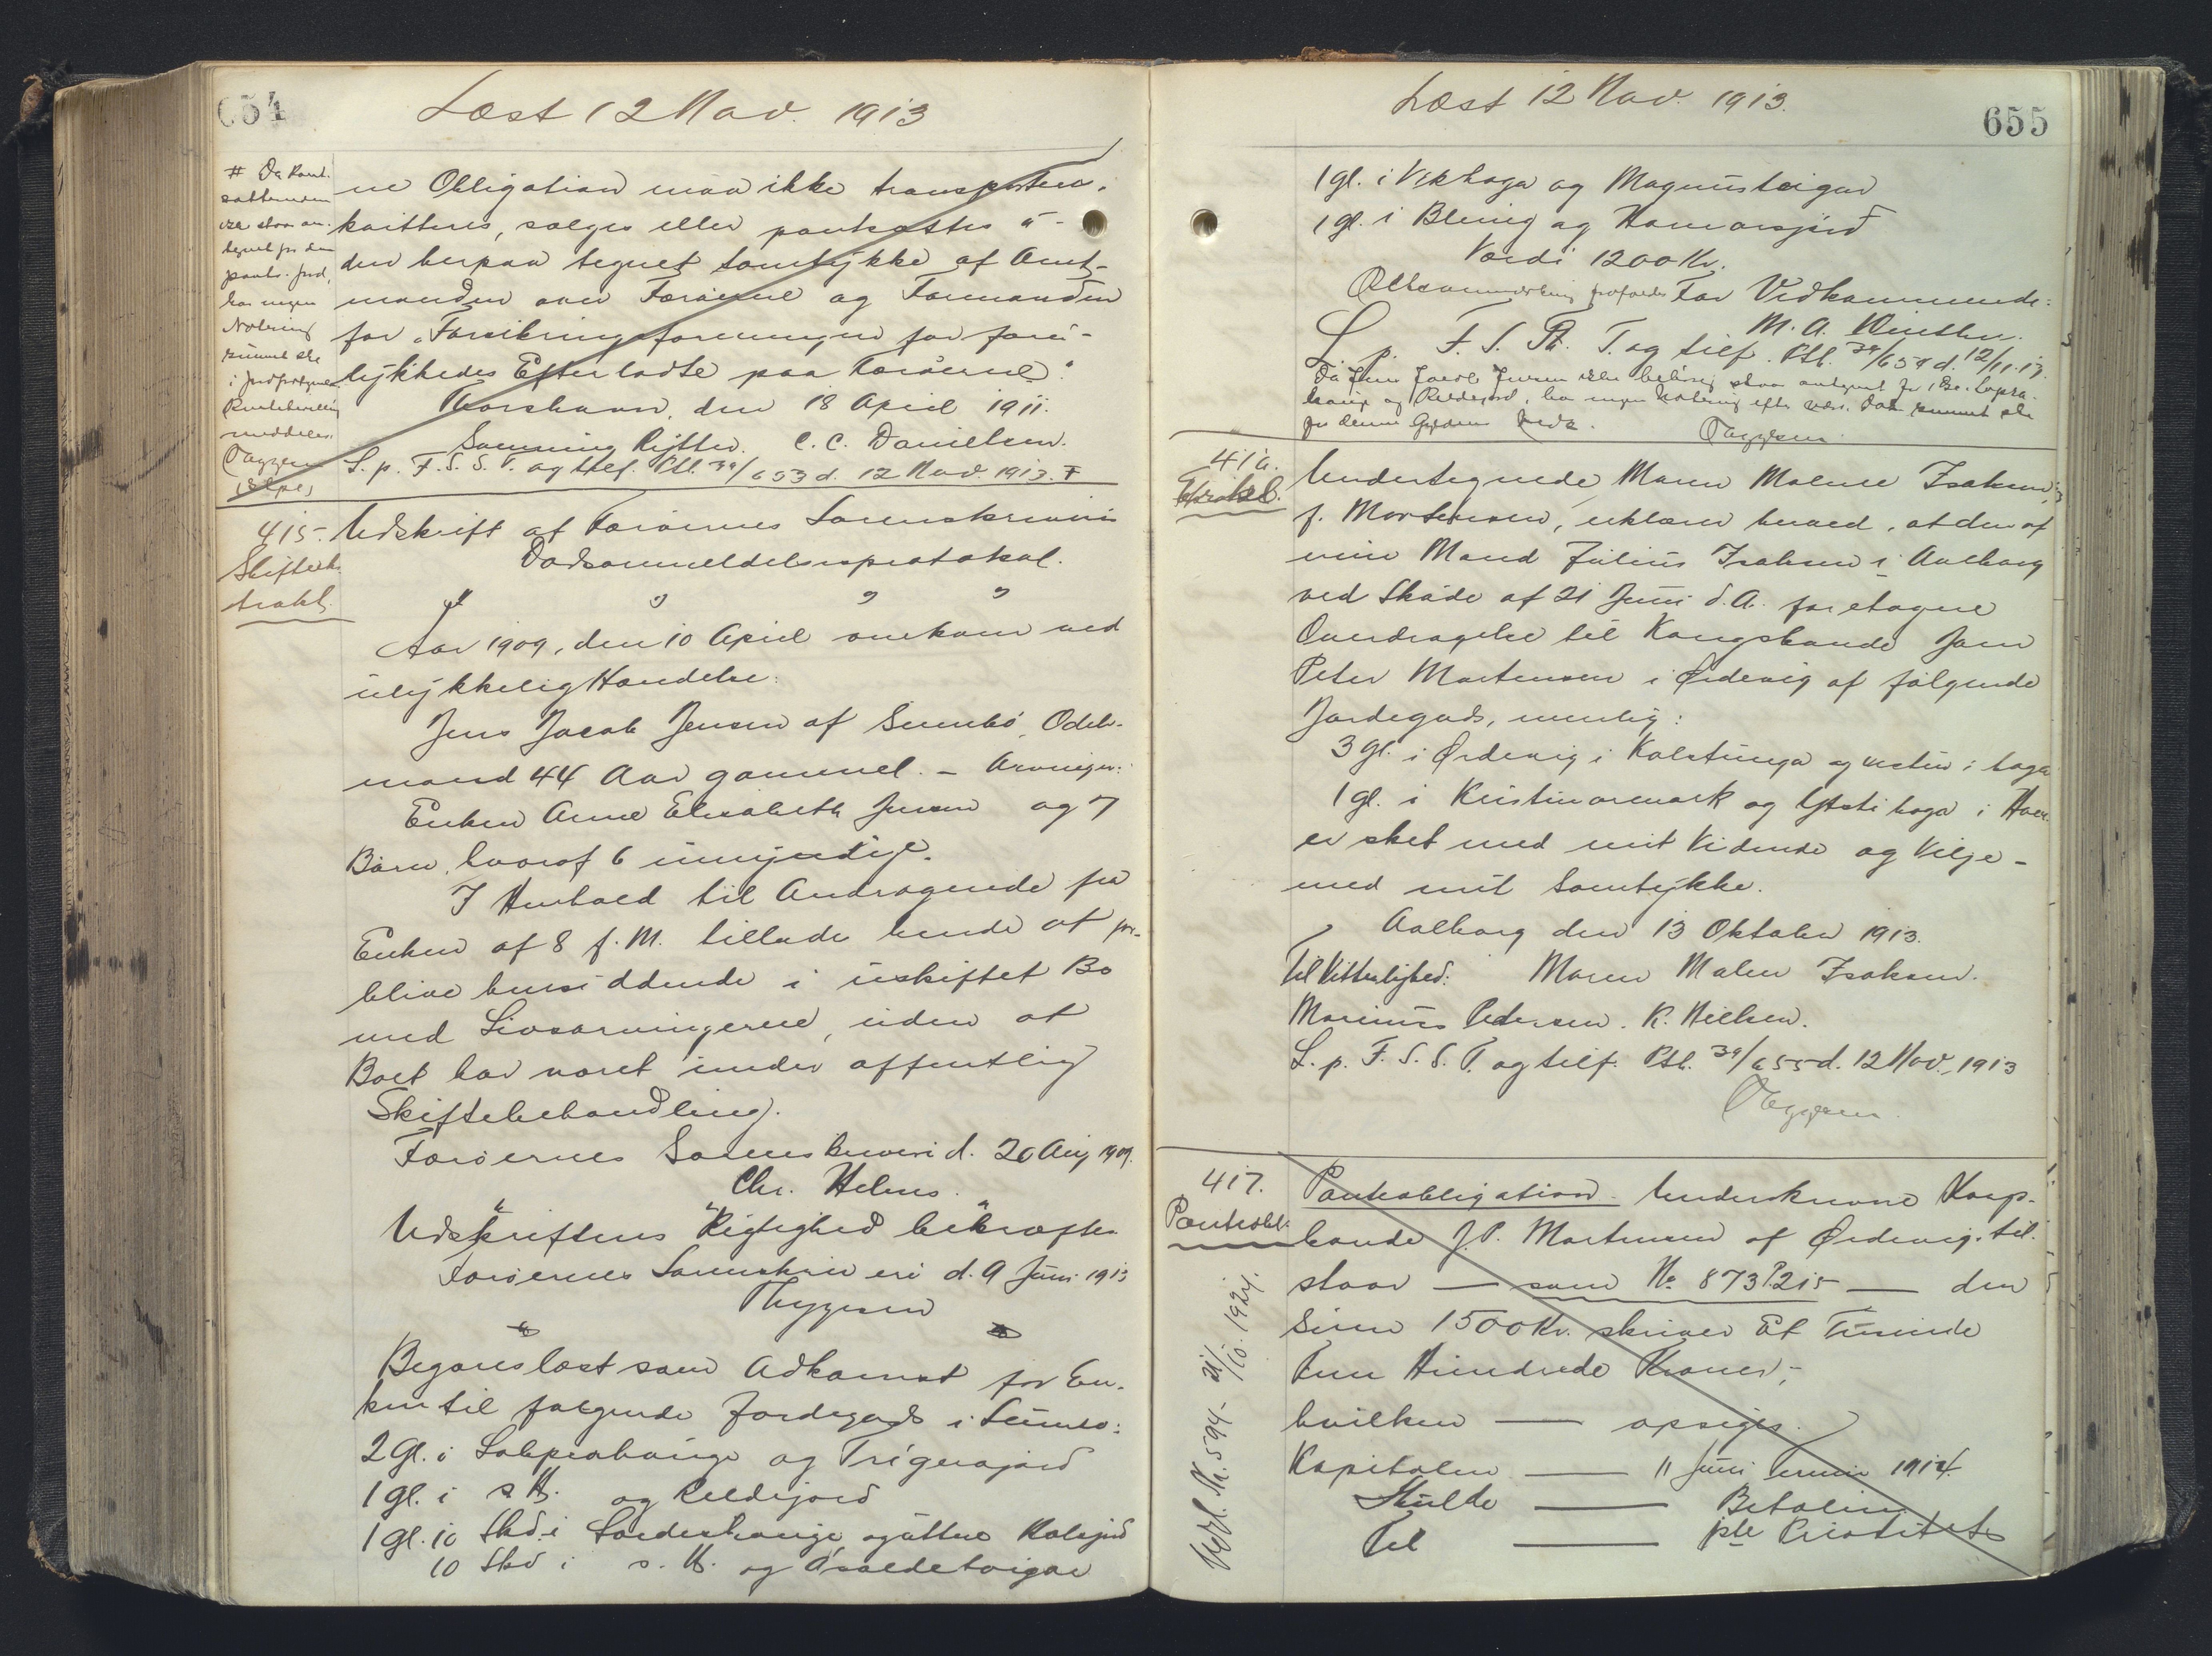 654
Læst 12 Nov. 1913
# Da Pant-
sætteren
ikke staar an-
tegnet for den
pants. Jord,
har ingen
Notering
kunnet ske
i Jordprotoko
meddeles.
Thygesen
ne Obligation maa ikke transporteres,
kvitteres, sælges eller pantsættes u-
den herpaa tegnet Samtykke af Amt-
manden over Færøerne og Formanden
for "Forsikringsforeningen for foru-
lykkedes Efterladte paa Færøerne."
Thorshavn, den 18 April 1911.
Svenning Rytter. C. C. Danielsen.
L. p. F. S. S. T. og tilf. Ptb. 39/653 d. 12 Nov. 1913. #
415.
Skifteeks-
trakt.
Udskrift af Færøernes Sorenskriveris
Dødsanmeldelsesprotokol.
Aar 1909, den 10 April omkom ved
ulykkelig Hændelse:
Jens Jacob Jensen af Sumbø, Odels-
mand 44 Aar gammel. – Arvinger:
Enken Anne Elisabeth Jensen og 7
Børn, hvoraf 6 umyndige.
I Henhold til Andragende fra
Enken af 8 f. M. tillades hende at for-
blive hensiddende i uskiftet Bo
med Livsarvingerne, uden at
Boet har været under offentlig
Skiftebehandling.
Færøernes Sorenskriveri d. 20 Aug 1909.
Chr. Helms.
Udskriftens Rigtighed bekræftes.
Færøernes Sorenskriveri d. 9 Juni 1913
Thygesen
Begæres læst som Adkomst for En-
ken til følgende Jordegods i Sumbø:
2 Gl. i Lopprahauge og Trigerajord
1 gl. i s. H. og Keldejord
1 gl. 10 Skd. i og uttare Kalsjord
10 Skd i s. H. og
655
Læst 12 Nov. 1913.
1 gl. i Vikhaga og Magnusteigar
1 gl. i Blenig og Hamarsjord
Værdi 1200 Kr.
For Vedkommende:
M. A. Winther.
L. p. F. S. Th. T. og tilf. Ptb. 39/654 d. 12/11.13.
Da Jens Jacob Jensen ikke staar antegnet for 1 Gl. i Loppra-
hauge og Keldejord, har ingen Notering efter kunnet ske
for denne Gyldens Jord.
Thygesen.
416.
Erklæl.
Undertegnede Maren Malene Isaksen,
f. Mortensen, erklærer herved, at den af
min Mand Julius Isaksen i Aalborg
ved Skøde af 21 Juni d. A. foretagne
Overdragelse til Kongsbonde Joen
Peter Mortensen i Ørdevig af følgende
Jordegods, nemlig:
3 gl. i Ørdevig i Kolstunga og vestur i haga
1 gl. i Kristinaremark og Ytstihaga i Hove
er sket med mit Vidende og Vilje –
med mit Samtykke.
Aalborg den 13 Oktober 1913.
Til Vitterlighed: Maren Malene Isaksen.
Marinus Pedersen. K. Nielsen.
L. p. F. S. S. T. og tilf. Ptb. 39/655 d. 12 Nov. 1913
Thygesen.
417.
Pantobl.
Udsl. Nr. 594 – 21/10. 1924.
Pantobligation. Underskrevne Kongs-
bonde J. P. Mortensen af Ørdevig, til-
staar — som No 873 P. 215 — den
Sum 1500 Kr. skriver Et Tusinde
Fem Hundrede Kroner,
hvilken — opsiges.
Kapitalen — 11 Juni Termin 1914.
Skulde — Betaling
Til — 1ste Prioritets